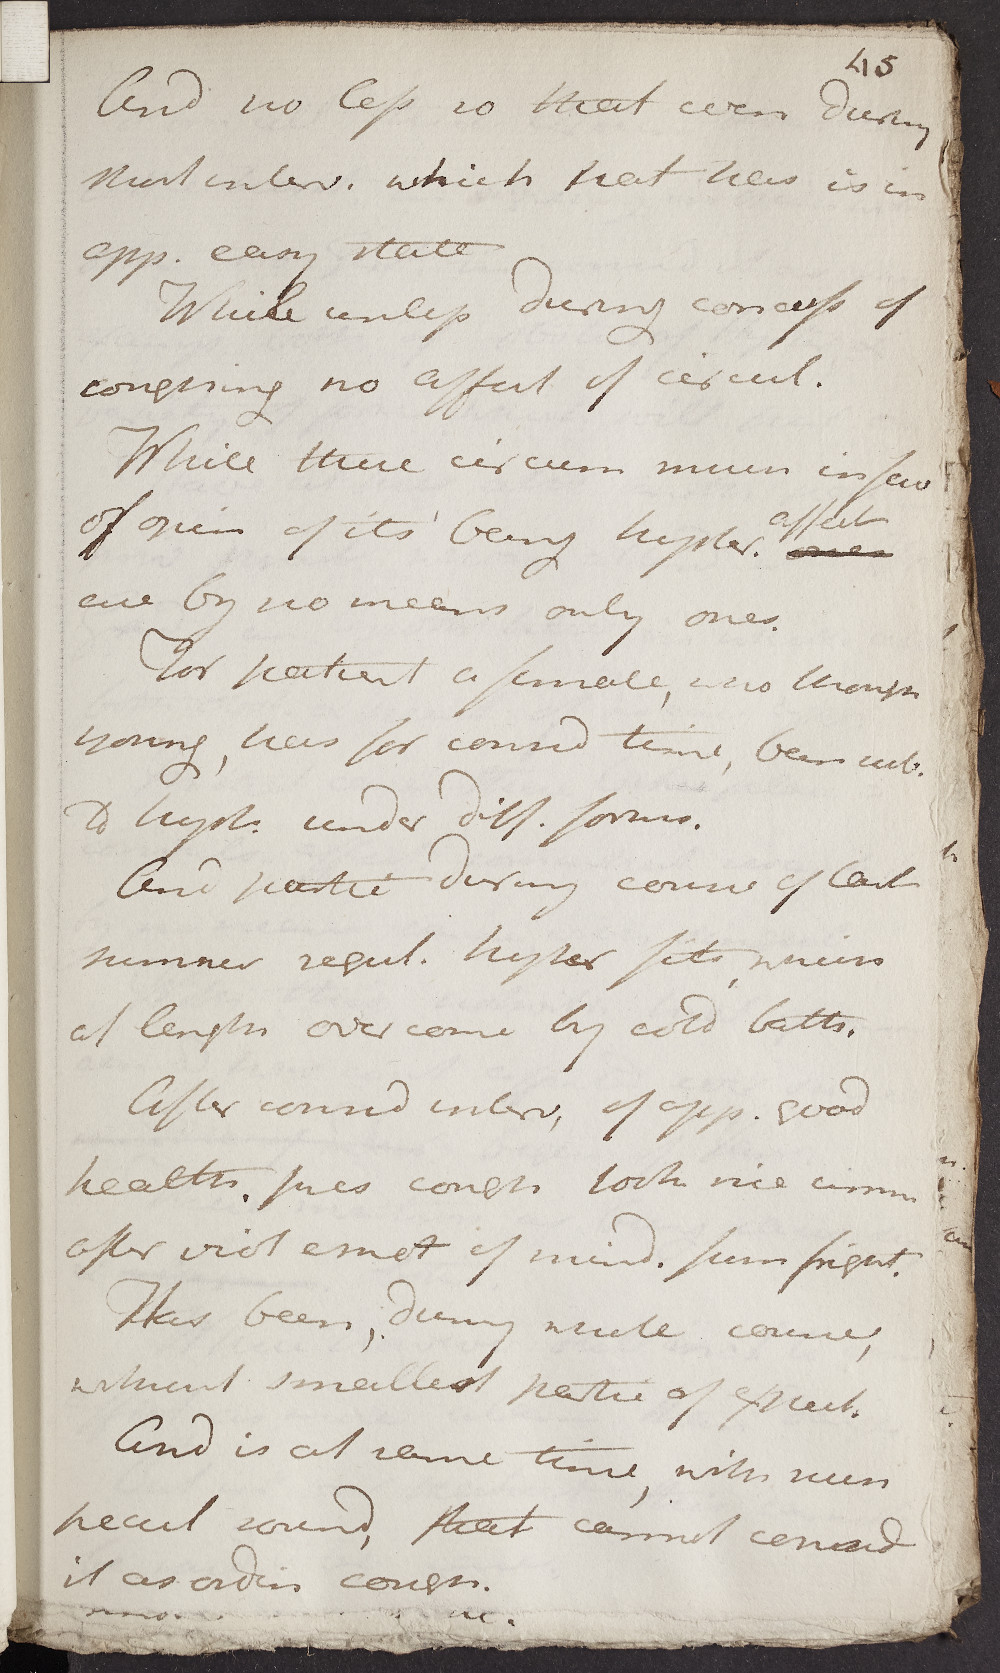 45
And no less so that even during
short interv. which pat has is in
app. easy state
While unless during concuss of
coughing no affect of circul.
While these circum mum in fav
of opin of its being hyster. affect
are by no means only ones.
For patient a female, who though
young, has for consid time, been sub.
to hyst. under diff. forms.
And partic during course of last
summer regul. hyster fits, which
at length overcome by cold bath.
After consid interv, of app. good
health. pres cough took rise
after viol emot of mind. from fright.
Has been, during whole course,
without smallest partic of expect.
And is at same time, with such
pecul sound, that cannot consid
it as ordin cough.